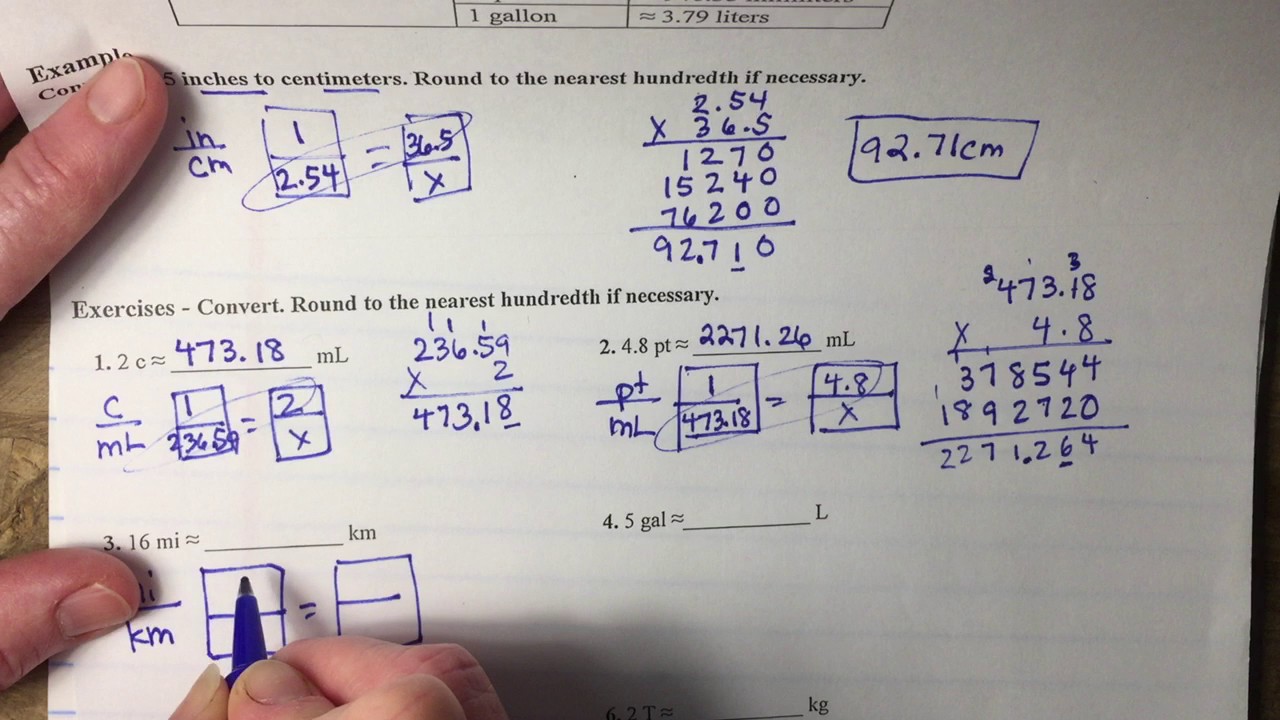 1 gallon ≈ 3.79 liters
Example
5 inches to centimeters. Round to the nearest hundredth if necessary.
in
cm
1
2.54
=
36.5
x
2.54
X 36.5
1270
15240
76200
92.710
92.71cm
Exercises - Convert. Round to the nearest hundredth if necessary.
1. 2 c ≈ 473.18 mL
c
mL
1
236.59
=
2
x
1 1 1
236.59
X 2
473.18
2. 4.8 pt ≈ 2271.26 mL
pt
mL
1
473.18
=
4.8
x
473.18
X 4.8
378544
1892720
2271.264
3. 16 mi ≈ km
km
=
4. 5 gal ≈ L
6. 2 T ≈ kg